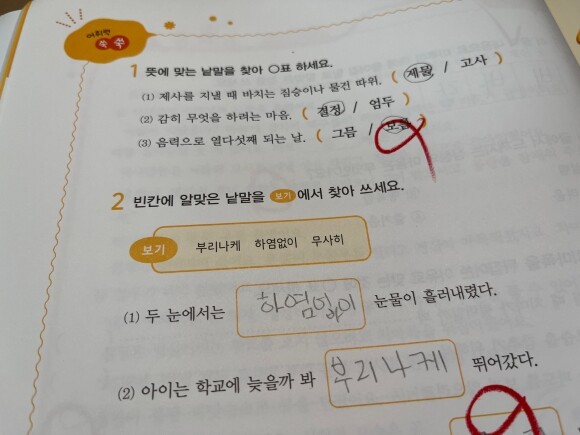 어휘력
쏙 쏙
1 뜻에 맞는 낱말을 찾아 ○표 하세요.
(1) 제사를 지낼 때 바치는 짐승이나 물건 따위. ( 제물 / 고사 )
(2) 감히 무엇을 하려는 마음. ( 결정 / 엄두 )
(3) 음력으로 열다섯째 되는 날. ( 그믐 / 보름 )
2 빈칸에 알맞은 낱말을 보기 에서 찾아 쓰세요.
보기 부리나케 하염없이 무사히
(1) 두 눈에서는 하염없이 눈물이 흘러내렸다.
(2) 아이는 학교에 늦을까 봐 부리나케 뛰어갔다.